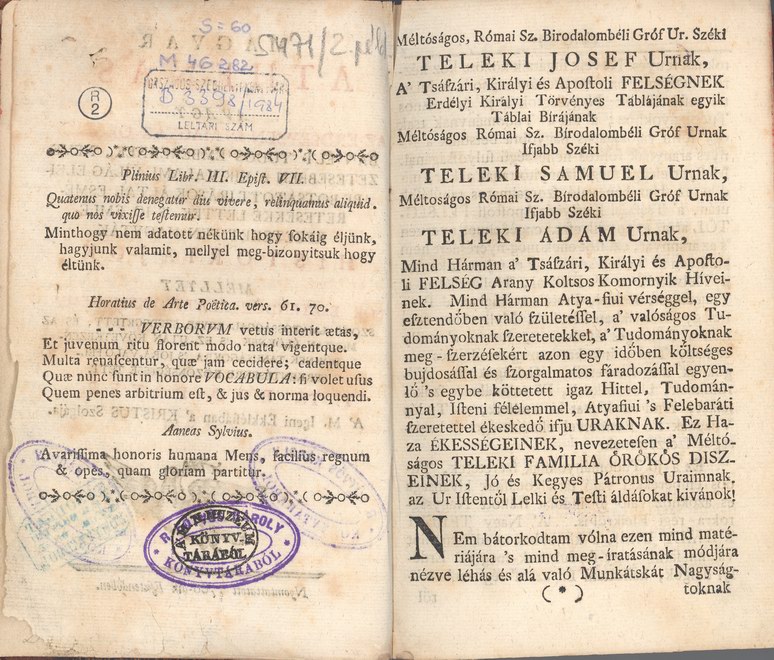 S=60
M 46282
B 3398/1984
LELTARI SZÁM
R
2
Plinius Libr. III. Epiſt. VII.
Quatenus nobis denegatur diu vivere, relinquamus aliquid,
quo nos vixiſſe teſtemur.
Minthogy nem adatott nékünk hogy ſokáig éljünk,
hagyjunk valamit, mellyel meg-bizonyitsuk hogy
éltünk.
Horatius de Arte Poëtica. vers. 61. 70.
- - - VERBORVM vetus interit ætas,
Et juvenum ritu florent modo nata vigentque.
Multa renaſcentur, quæ jam cecidere; cadentque
Quæ nunc ſunt in honore VOCABULA: ſi volet uſus
Quem penes arbitrium eſt, & jus & norma loquendi.
Aaneas Sylvius.
Avariſſima honoris humana Mens, facilius regnum
& opes, quam gloriam partitur.
KÖNYV-
TÁRÁBÓL
KÖNYVTÁRÁBÓL
Méltóságos, Római Sz. Birodalombéli Gróf Ur. Széki
TELEKI JOSEF Urnak,
A' Tsáſzári, Királyi és Apoſtoli FELSÉGNEK
Erdélyi Királyi Törvényes Táblájának egyik
Táblai Bírájának
Méltóságos Római Sz. Bírodalombéli Gróf Urnak
Ifjabb Széki
TELEKI SAMUEL Urnak,
Méltóságos Római Sz. Bírodalombéli Gróf Urnak
Ifjabb Széki
TELEKI ÁDÁM Urnak,
Mind Hárman a' Tsáſzári, Királyi és Apoſto-
li FELSÉG Arany Koltsos Komornyik Hívei-
nek. Mind Hárman Atya-fiui vérséggel, egy
eſztendőben való születéſſel, a' valóságos Tu-
dományoknak ſzeretetekkel, a' Tudományoknak
meg-ſzerzéſekért azon egy időben költséges
bujdosáſſal és ſzorgalmatos fáradozáſſal egyen-
lő 's egybe köttetett igaz Hittel, Tudomán-
nyal, Iſteni félelemmel, Atyafiui 's Felebaráti
ſzeretettel ékeskedő ifju URAKNAK. Ez Ha-
za ÉKESSÉGEINEK, nevezeteſen a' Méltó-
ságos TELEKI FAMILIA ÖRÖKÖS DISZ-
EINEK, Jó és Kegyes Pátronus Uraimnak,
az Ur Iſtentől Lelki és Teſti áldáſokat kivánok!
NEm bátorkodtam vólna ezen mind maté-
riájára 's mind meg-íratásának módjára
nézve léhás és alá való Munkátskát Nagyság-
( * ) toknak